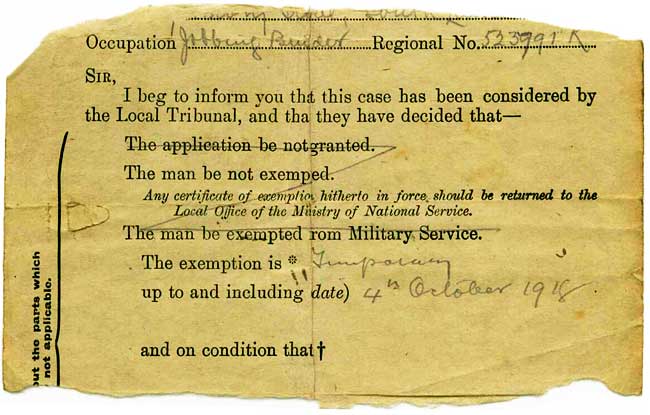 Occupation Jobbing Builder Regional No. 523991 K
SIR,
I beg to inform you that this case has been considered by
the Local Tribunal, and tha they have decided that—
The application be not granted.
The man be not exemped.
Any certificate of exemptio hitherto in force should be returned to the
Local Office of the Ministry of National Service.
The man be exempted rom Military Service.
The exemption is * Temporary
up to and including date) 4th October 1918
and on condition that †
out the parts which
not applicable.